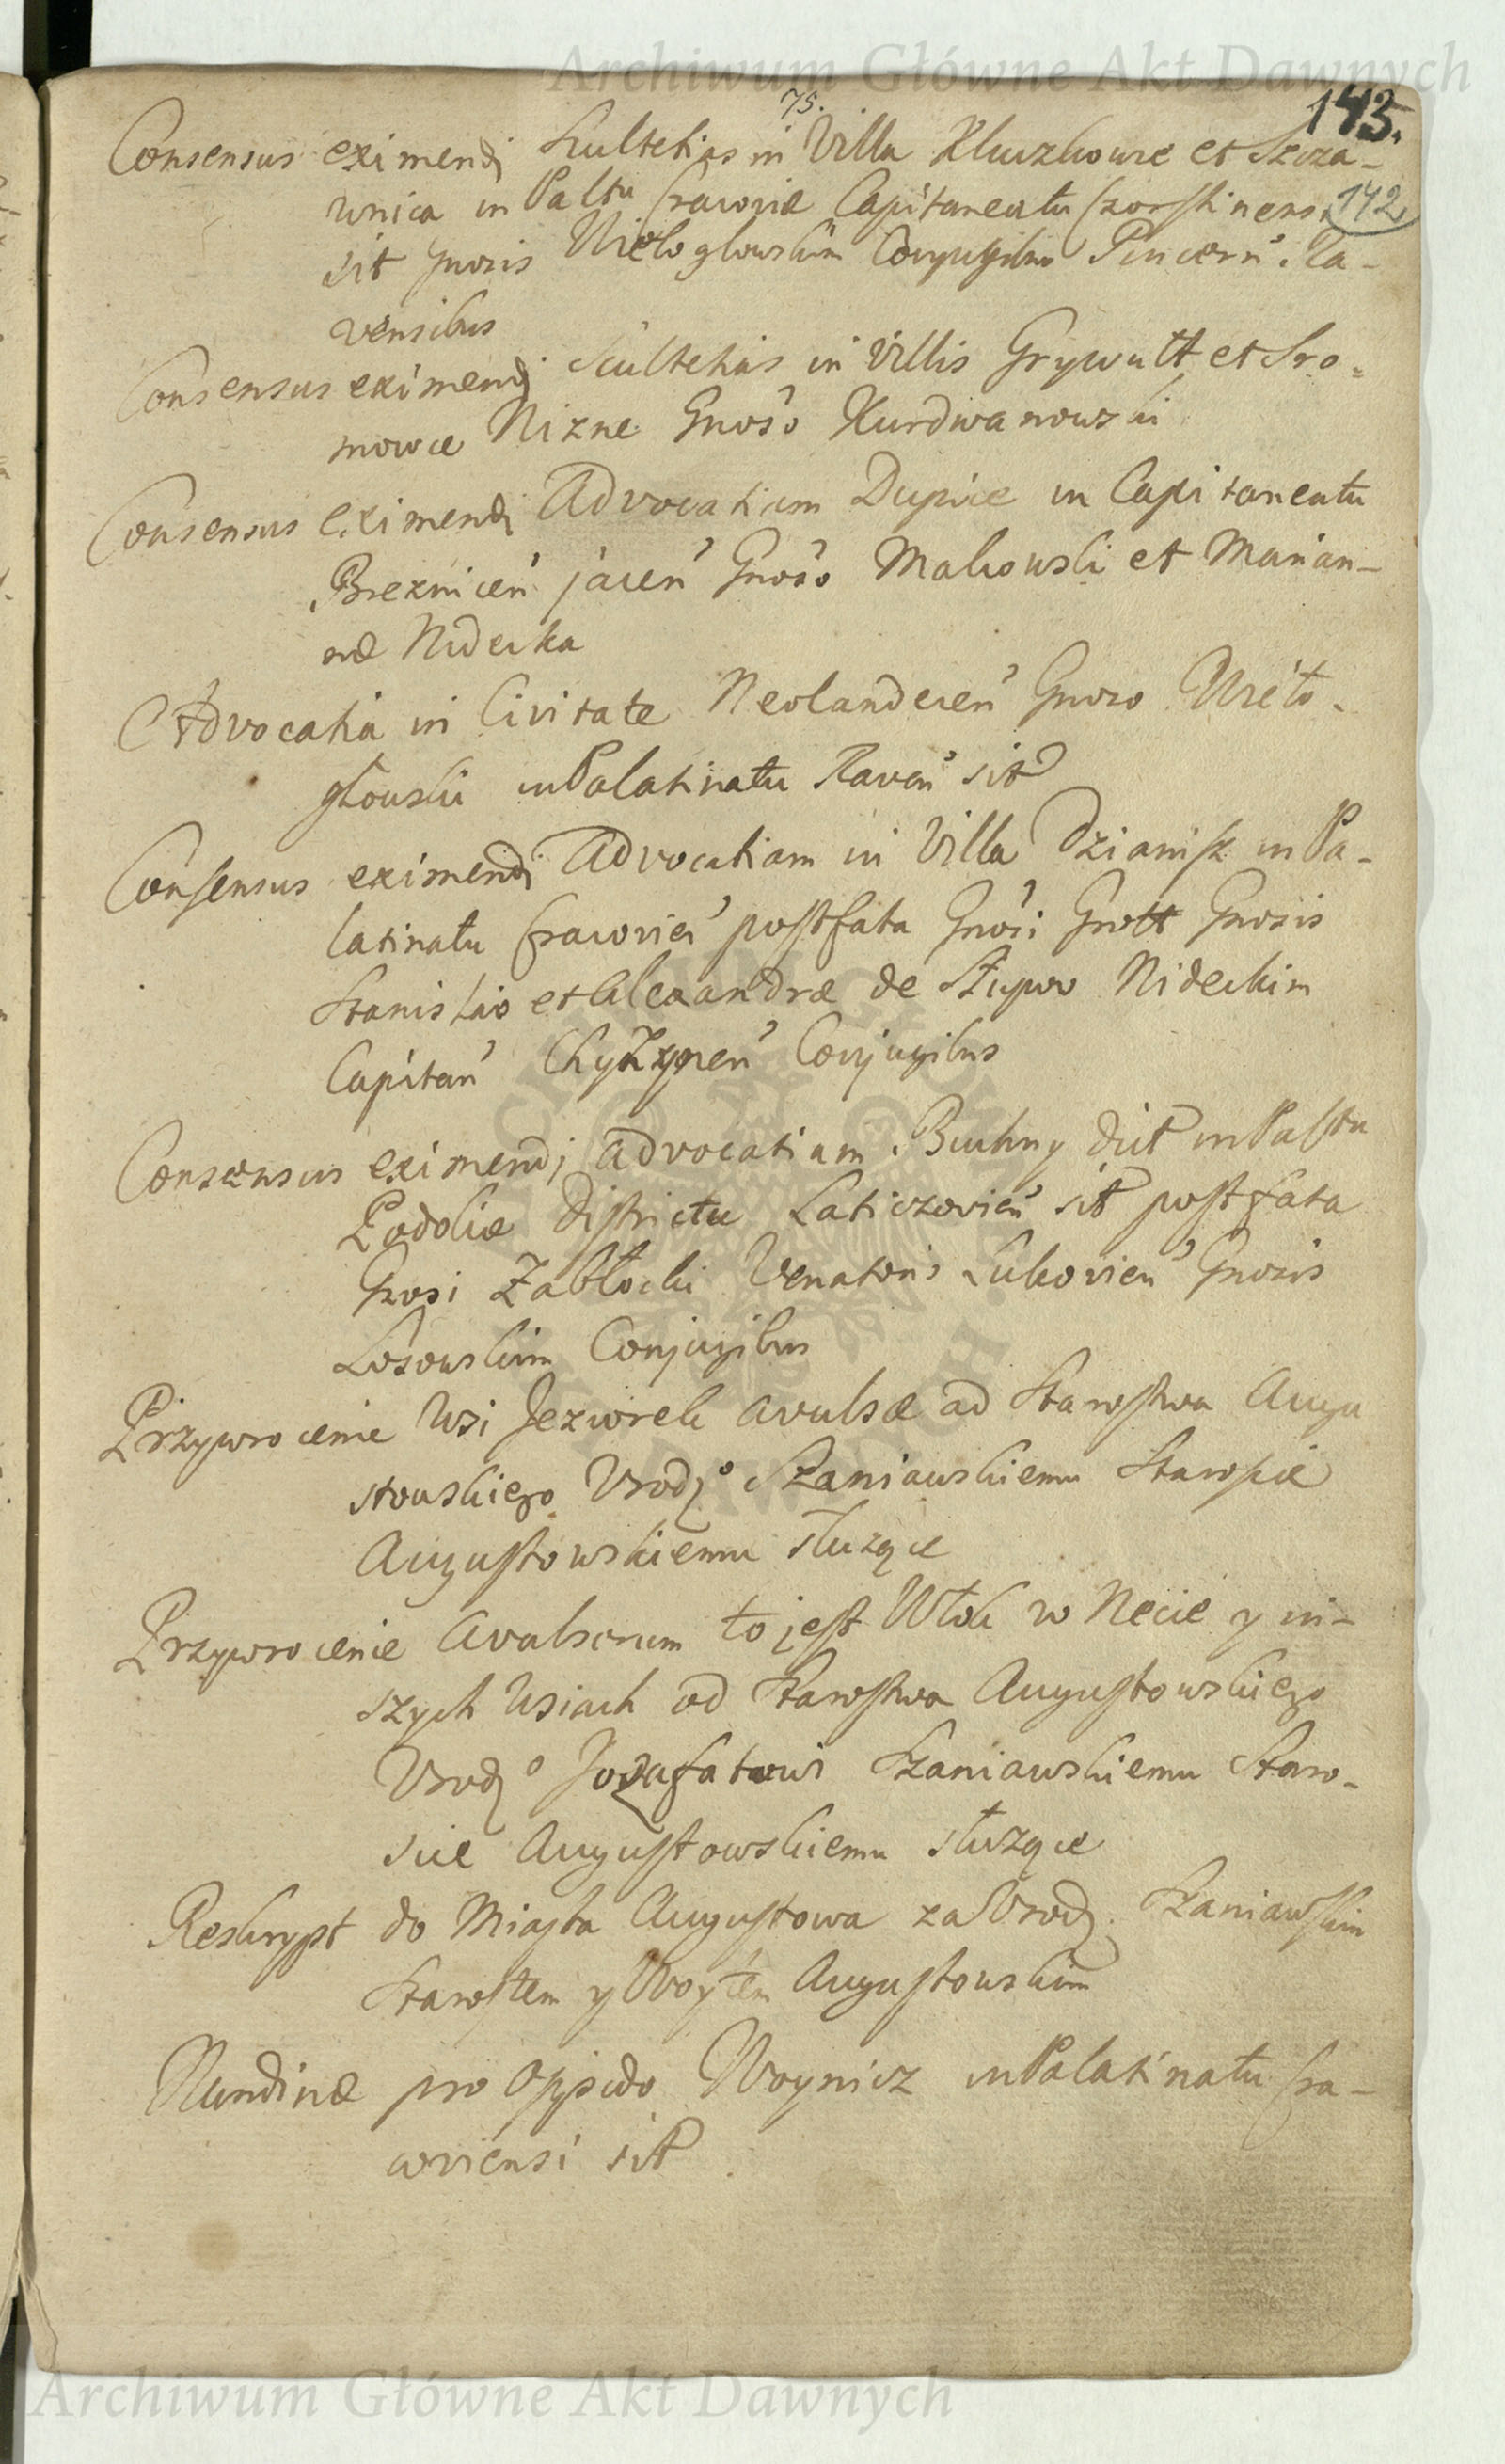 Archiwum Główne Akt Dawnych
75.
143.
142
Consensus eximendi Scultetias in Villa Kluszkowce et Szcza-
wnica in Palttu Cracoviæ Capitaneatu Czorstinensi
sit Gnosis Wielogłowskim Conjugibus Pincern. Ra-
vensibus
Consensus eximendi Scultetias in Villis Grywałt et Sro-
mowce Nizne Gnoso Kurdwanowski
Consensus eximendi Advocatiam Dupice in Capitaneatu
Breznicen jacen Gnoso Makowski et Marian-
næ Nidecka
Advocatia in Civitate Neolandecen Gnoso Wielo-
głowski in Palatinatu Raven sit
Consensus eximendi Advocatiam in Villa Dzianisz in Pa-
latinatu Cracovien post fata Gnosi Grott Gnosis
Stanislao et Alexandræ de Słupow Nideckim
Capitan Chyżynen Conjugibus
Consensus eximendi advocatiam Buchny dict in Palttu
Podoliæ Districtu Laticzovien sit post fata
Gnosi Zabłocki Venatoris Lukovien Gnosis
Losowskim Conjugibus
Przywrocenie Wsi Jeziorek avulsæ ad Starostwa Augu
stowskiego Urodz° Szaniawskiemu Staroscie
Augustowskiemu słuzące
Przywrocenie Avulsorum to jest Włok w Necie y in-
szych Wsiach od Starostwa Augustowskiego
Urodz° Jozafatowi Szaniawskiemu Staro-
scie Augustowskiemu słuzące
Reskrypt do Miasta Augustowa za Urodz. Szaniawskim
Starostem y Woytem Augustowskim
Nundinæ pro Oppido Woynicz in Palatinatu Cra-
coviensi sit
Archiwum Główne Akt Dawnych